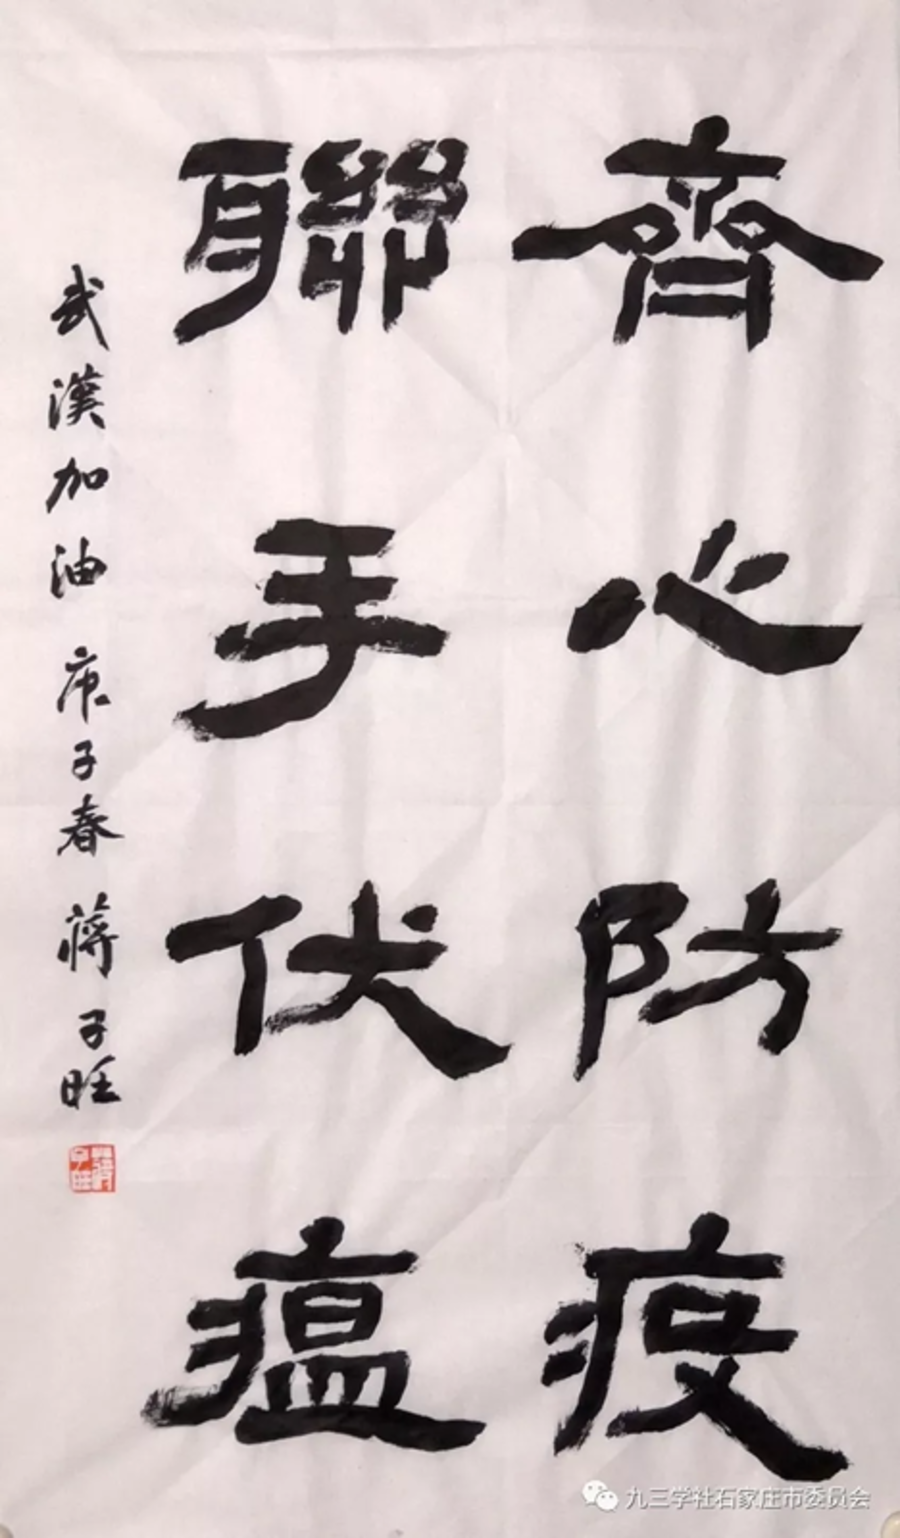 齊心防疫
聯手伏瘟
武漢加油 庚子春 蔣子旺
九三学社石家庄市委员会